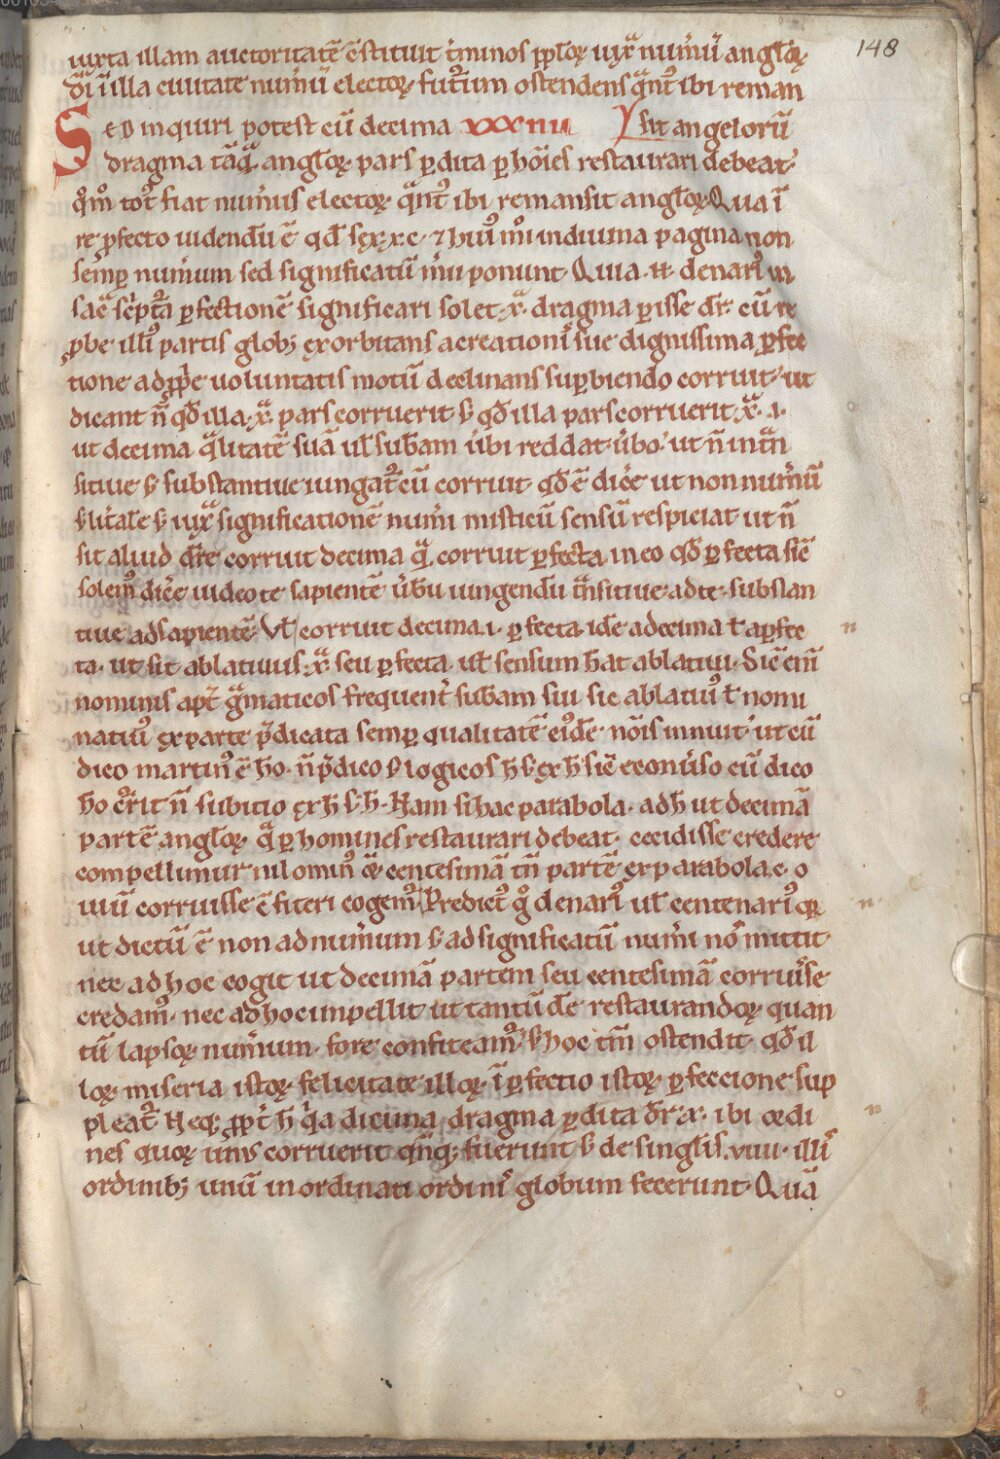 148
iuxta illam auctoritatē c̄stituit t̃minos pplor̃ iuxͣ num̃ū anglor̃
dī ī illa ciuitate num̃ū elector̃ futur̃um ostendens qͣnt᷒ ibi reman
SED inquiri potest cū decima XXXIIII sit angelorū
dragma tāqͣ anglor̃ pars ꝑdita ꝑ hōies restaurari debeat·
qͦm̊ tot fiat num̃us elector̃ qͣnt᷒ ibi remansit anglor̃· Qua ī
re ꝓfecto uidendū ē qd̄ sex· x· c· ⁊ huiꝰ mͦi in diuina pagina non
semꝑ num̃um sed significatū nūi ponunt· Quia denariꝰ in
sacͣ sc̃ptͣa ꝑfectionē significari solet· xͣ dragma ꝑisse dr̄· cū re
ꝓbe illiꝰ partis globꝫ exorbitans a creationis sue dignissima ꝑfec
tione ad ꝓp̃e uoluntatis motū declinans suꝑbiendo corruit· ut
dicant n̄ qd̄ illa xͣ pars corruerit s; qd̄ illa pars corruerit xͣ· i·
ut decima qͣlitatē suā ul̄ sub̄am ũbi reddat ũbo· ut n̄ intͣn
sitiue s; substantiue iungat᷒ cū corruit· qd̄ ē dic̃e ut non num̃ū
s; iuxͣ significationē num̃i misticū sensū respiciat ut n̄
sit aliud dic̃e corruit decima qͣ corruit ꝑfecta in eo qd̄ ꝑfecta sic̄
solemꝰ dic̃e uideo te sapientē ũbū iungendū tͣnsitiue ad te· substan
tiue ad sapientē· Vl̄ corruit decima· i· ꝑfecta· idē a decima ł a ꝑfec
ta· ut sit ablatiuus xͣ seu ꝑfecta· ul̄ sensum h̄at ablatiui· Sic̄ enī
nominis apͭ gͣmaticos frequent̃ sub̄am sui sic ablatiuꝰ ł nomi
natiuꝰ ex parte p̄dicata semꝑ qualitatē eiꝰdē nōis innuit· ut cū
dico martinꝰ ē h̊o· n̄ p̄dico s; logicos h̄ s; ex h̄ sic̄ econũso cū dico
h̊o c̃rit n̄ subicio ex h̄ s; h̄· Nam si hac parabola· ad h̄ ut decimā
partē anglor̃· qͣ ꝑ homines restaurari debeat· cecidisse credere
compellimur nil ominꝰ qͣ centesimā tn̄ partē ex parabola· c· o
uiū corruisse c̄fiteri cogemꝰ· Predict᷒ gͦ denariꝰ ul̄ centenariꝰ
ut dictū ē non ad num̃um s; ad significatū num̃i nos mittit·
nec ad hoc cogit ut decimā partem seu centesimā corruisse
credamꝰ· nec ad hoc inpellit ut tantūdē restaurandor̃· quan
tū lapsor̃ num̃um· fore confiteamꝰ· s; hoc tm̄ ostendit· qd̄ il
lor̃ miseria istor̃ felicitate· illor̃· īꝑfectio istor̃ ꝑfeccione sup
pleat᷒· Neqꝫ ꝓpt̃ h̄ qͣa dicima dragma ꝑdita dr̄· x· ibi ordi
nes quor̃ unꝰ corruerit fuerunt s; de singlis· viiii· illiꝰ
ordinibꝫ unū inordinati ordinis globum fecerunt· Quā